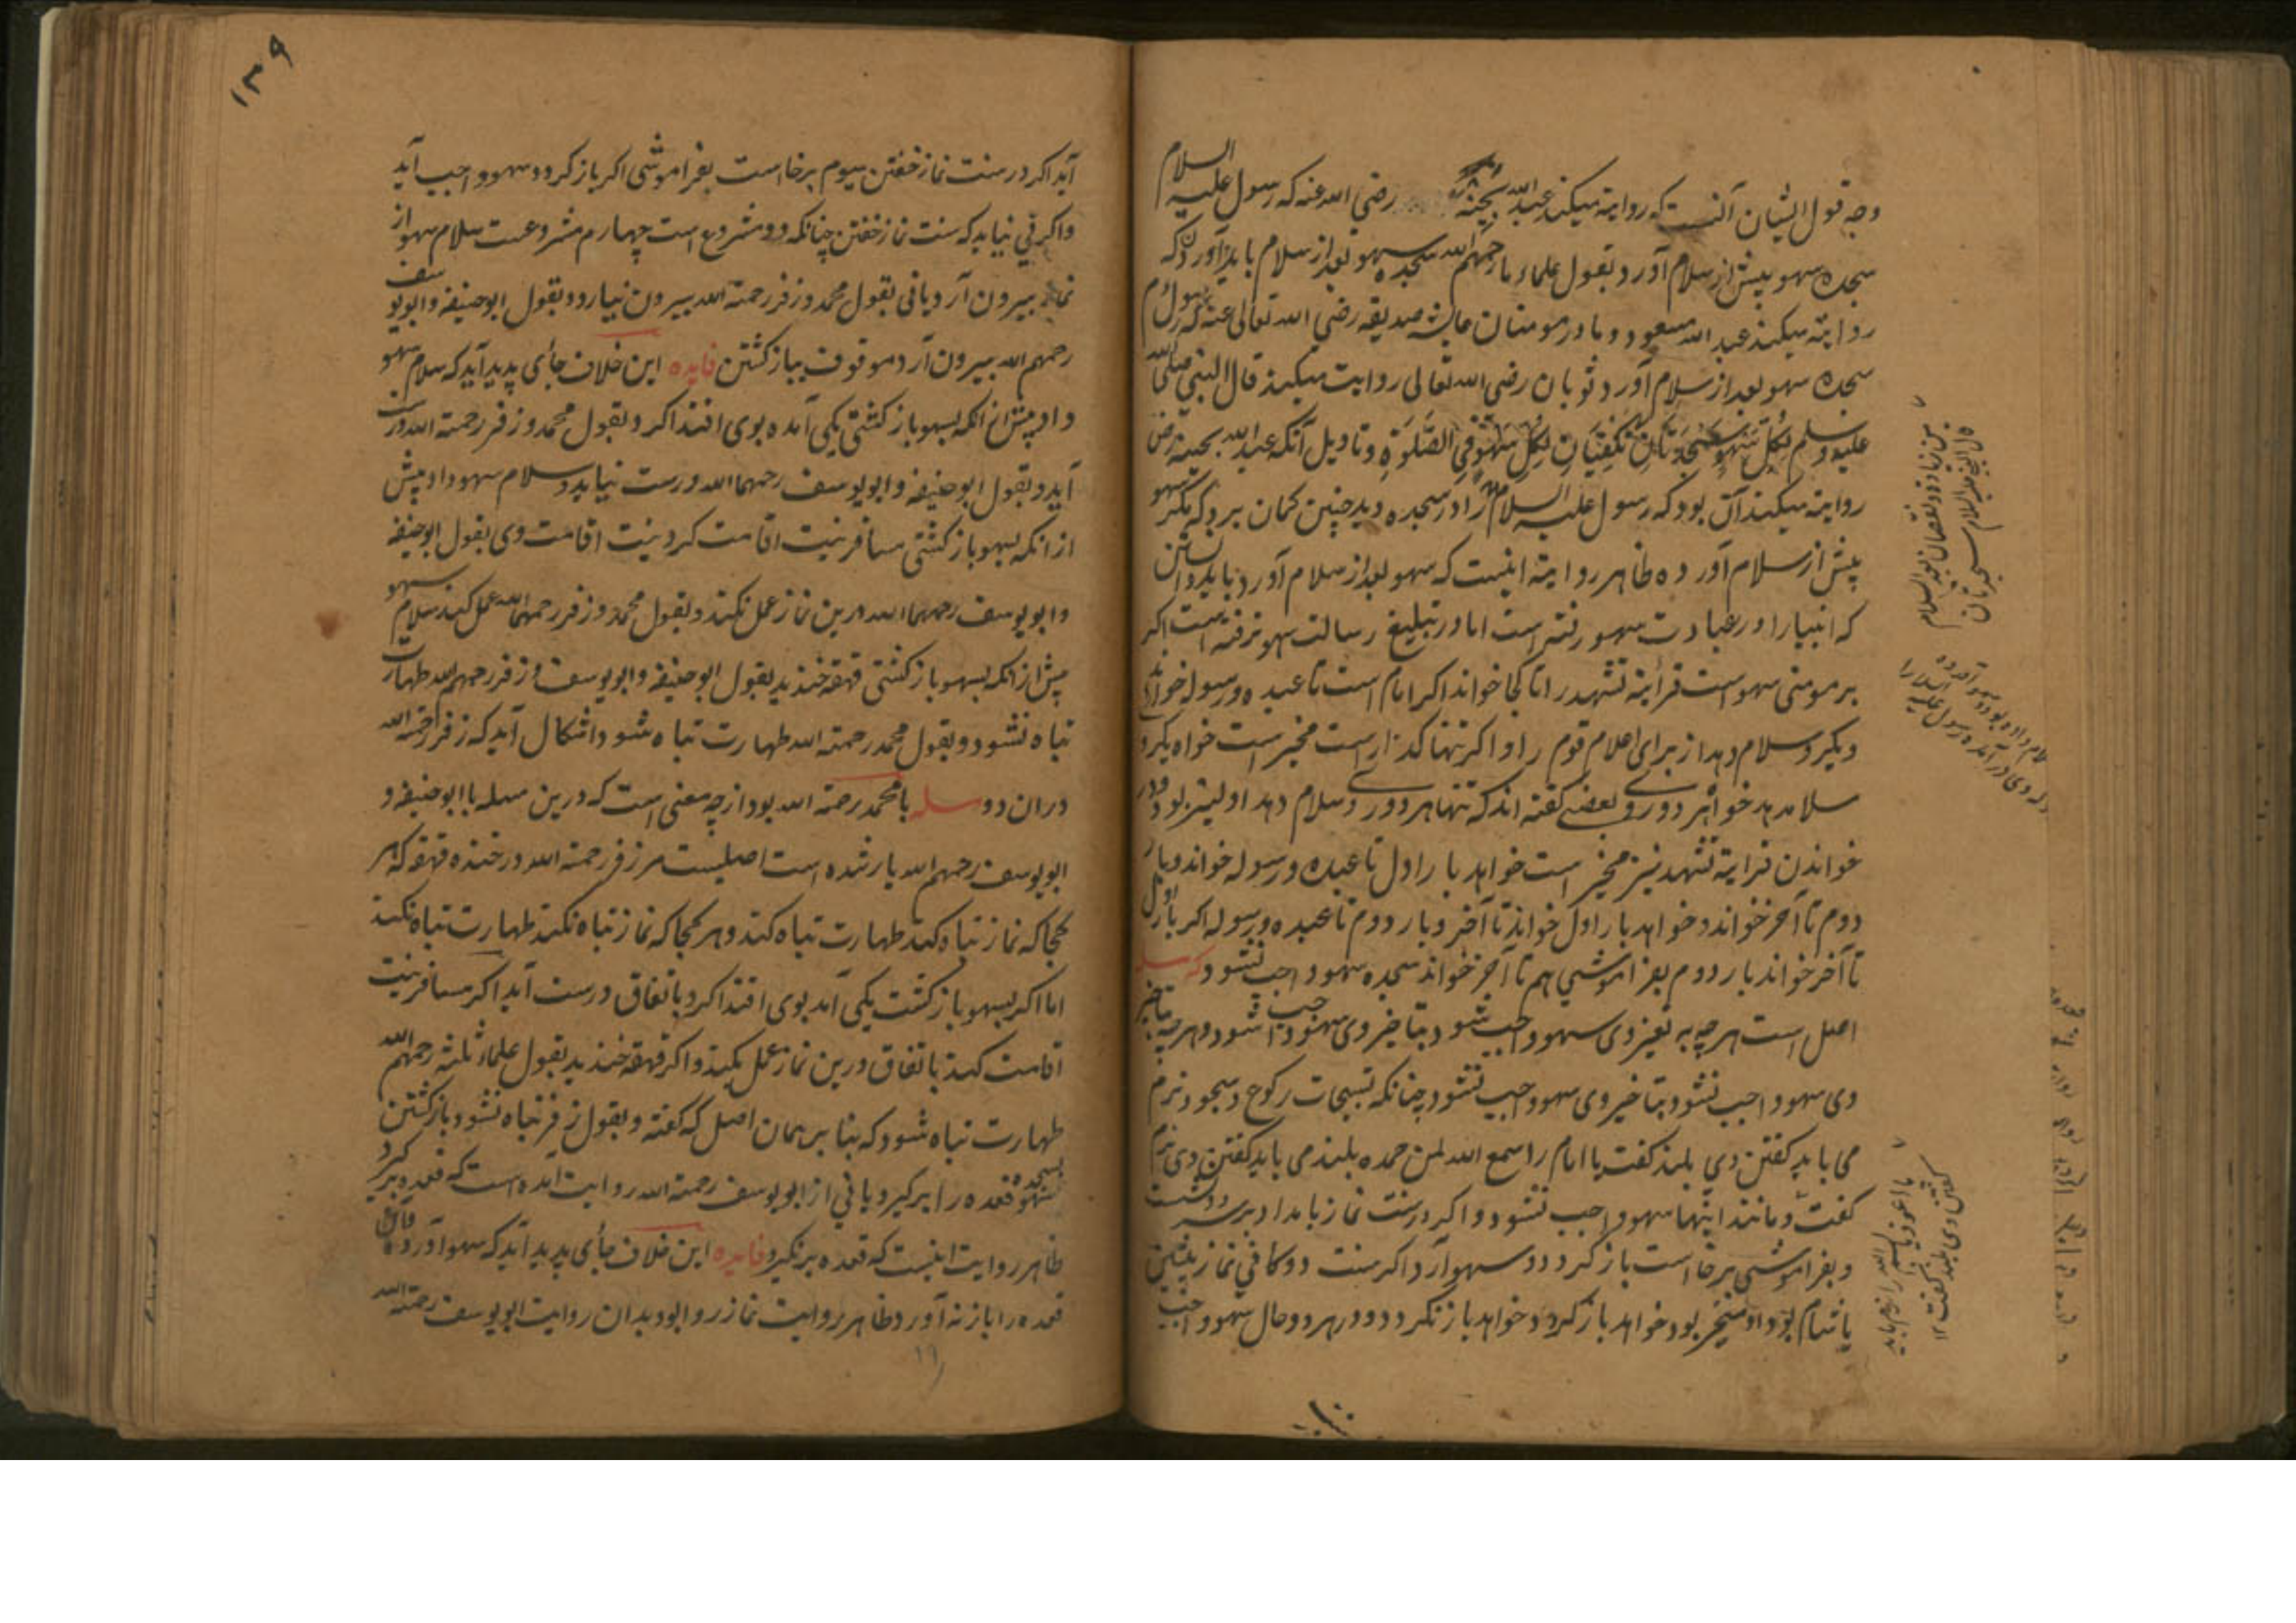 وجه قول ایشان آنست که روایة میکند عبد الله بحینه رضی الله عنه که رسول علیه السلام
سجده سهو پیش از سلام آورد و بقول علماء ما رحمهم الله سجده سهو بعد از سلام باید آوردن که
روایة میکند عبد الله مسعود و مادر مومنان عایشه صدیقه رضی الله تعالی عنه که رسول م
سجده سهو بعد از سلام آورد و ثوبان رضی الله تعالی روایت میکند قال النبی صلی الله
علیه وسلم لکل سهو سجدتان تکفیان لکل سهو فی الصلوة و تاویل آنکه عبد الله بحینه رض
روایة میکند آن بود که رسول علیه السلام را در سجده دید چنین کمان برد که مکر سهو
پیش از سلام آورده ظاهر روایة اینست که سهو بعد از سلام آورد بباید دانستن
که انبیا را در عبادت سهو رفته است اما در تبلیغ رسالت سهو نرفته است اکر
بر مومنی سهو است قرأیة تشهد را تا کجا خواند اکر امام است تا عبده ورسوله خواند
دیکر و سلام دهد از برای اعلام قوم را و اکر تنها کذار است مخیر است خواه یکرو
سلام دهد خواه هر دو روی و بعضی کفته اند که تنها هر دو روی سلام دهد اولیتر بود و در
خواندن قرایة تشهد نیز مخیر است خواهد بار اول تا عبده ورسوله خواند و بار
دوم تا آخر خواند و خواهد بار اول خواند تا آخر و بار دوم تا عبده ورسوله اکر بار اول
تا آخر خواند بار دوم بفراموشی هم تا آخر خواند سجده سهو واجب نشود که
اصل است هر چه به تغیر وی سهو واجب شود بتاخیر وی سهو واجب شود و هر چه بتاخیر
وی سهو واجب نشود بتاخیر وی سهو واجب نشود چنانکه تسبیحات رکوع و سجود نرم
می باید کفتن وی بلند کفت یا امام را سمع الله لمن حمده بلند می باید کفتن وی نرم
کفت و مانند اینها سهو واجب نشود و اکر در سنت نماز بامداد
و بفراموشی برخاست باز کردد و سهو آرد اکر سنت دوکانی نماز پیشین
یا شام بود او مخیر بود خواهد باز کردد خواهد باز نکردد و در هر دو حال سهو واجب
قال النبی علیه السلام سجدتان
من زیادة و نقصان بعد السلام
یا اعوذ و یا بسم الله را نرم باید
کفتن وی بلند کفت ۱۲
۱۳۹
آید اکر در سنت نماز خفتن سیوم برخاست بفراموشی اکر باز کردد سهو واجب آید
واکر نی نیاید که سنت نماز خفتن چنانکه دو مشروع است چهارم مشروعست سلام سهو از
نماز بیرون آرد یا نی بقول محمد و زفر رحمة الله بیرون نیارد و بقول ابو حنیفه و ابو یوسف
رحمهم الله بیرون آرد موقوف بباز کشتن فایده این خلاف جأی پدید آید که سلام سهو
داد پیش از انکه بسهو باز کشتی یکی آمده بوی اقتدا کرد بقول محمد و زفر رحمة الله درست
آید و بقول ابو حنیفه و ابو یوسف رحمهما الله درست نیاید و سلام سهو داد پیش
از انکه بسهو باز کشتی مسافر نیت اقامت کرد نیت اقامت وی بقول ابو حنیفه
و ابو یوسف رحمهما الله درین نماز عمل نکند و بقول محمد و زفر رحمهما الله عمل کند سلام سهو
پیش از انکه بسهو باز کشتی قهقه خندید بقول ابو حنیفه و ابو یوسف و زفر رحمهم الله طهارت
تباه نشود و بقول محمد رحمة الله طهارت تباه شود و اشکال آید که زفر رحمة الله
دران دو مسله با محمد رحمة الله بود از چه معنی است که درین مسله با ابو حنیفه و
ابو یوسف رحمهم الله یار شده است اصلیست مر زفر رحمة الله در خنده قهقه که هر
کجا که نماز تباه کند طهارت تباه کند و هر کجا که نماز تباه نکند طهارت تباه نکند
اما اکر بسهو باز کشت یکی آمد بوی اقتدا کرد باتفاق درست آید اکر مسافر نیت
اقامت کند باتفاق درین نماز عمل بکند و اکر قهقه خندید بقول علماء ثلثه رحمهم الله
طهارت تباه شود که بنا بر همان اصل که کفته و بقول زفر تباه نشود باز کشتن
بسجده سهو قعده را بر کیرد یا نی از ابو یوسف رحمة الله روایت آمده است که قعده بر کیرد
ظاهر روایت اینست که قعده بر نکیرد فایده این خلاف جأی پدید آید که سهو آورد
قعده را باز نه آورد ظاهر روایت نماز روا بود بدان روایت ابو یوسف رحمة الله